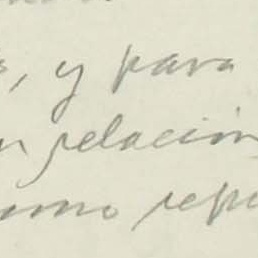 , y para
relación
como repe